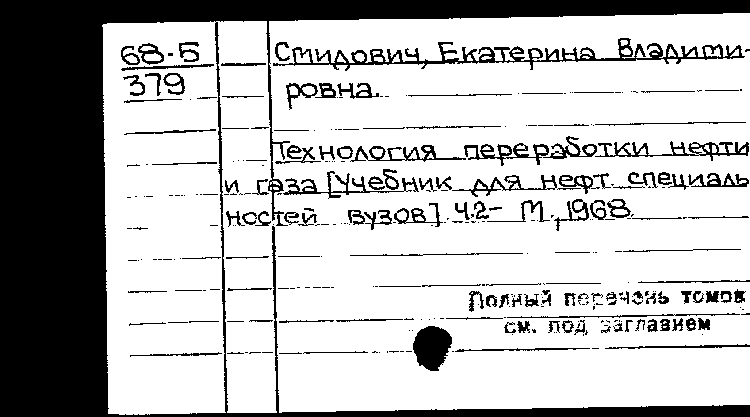 68-5
379
Смидович, Екатерина Владими-
ровна.
Технология переработки нефти
и газа [Учебник для нефт. специаль
ностей вузов]. Ч.2- М., 1968
Полный перечень томов
см. под заглавием